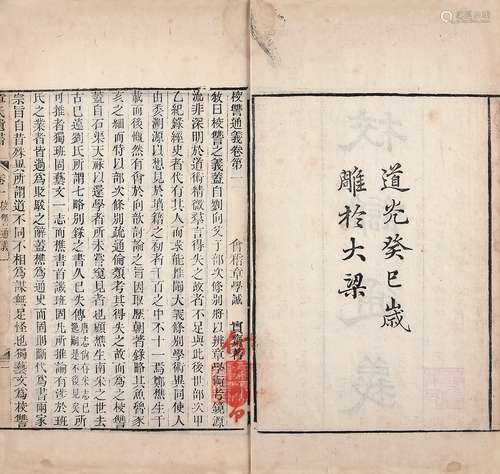 道光癸巳歲
雕於大梁
校讎通義卷第一
會稽章學誠 實齋著
敘曰校讎之義蓋自劉向父子部次條別將以辨章學術考鏡源
流非深明於道術精微羣言得失之故者不足與此後世部次甲
乙紀錄經史者代有其人而求能推闡大義條別學術異同使人
由委溯源以想見於墳籍之初者千百之中不十一焉鄭樵生千
載而後慨然有會於向歆討論之旨因取歷朝著錄略其魚魯豕
亥之細而特以部次條別疏通倫類考其得失之故而爲之校讎
蓋自石渠天祿以還學者所未嘗窺見者也顧樵生南宋之世去
古已遠劉氏所謂七略別錄之書久已失傳唐志尚存宋志已逸嗣是不復見矣所
可推者獨班固藝文一志而樵書首譏班固凡所推論有涉於班
氏之業者皆過爲貶駁之辭蓋樵爲通史而固則斷代爲書兩家
宗旨自昔殊異所謂道不同不相爲謀無足怪也獨藝文爲校讎
章氏遺書 卷一 校讎通義 一